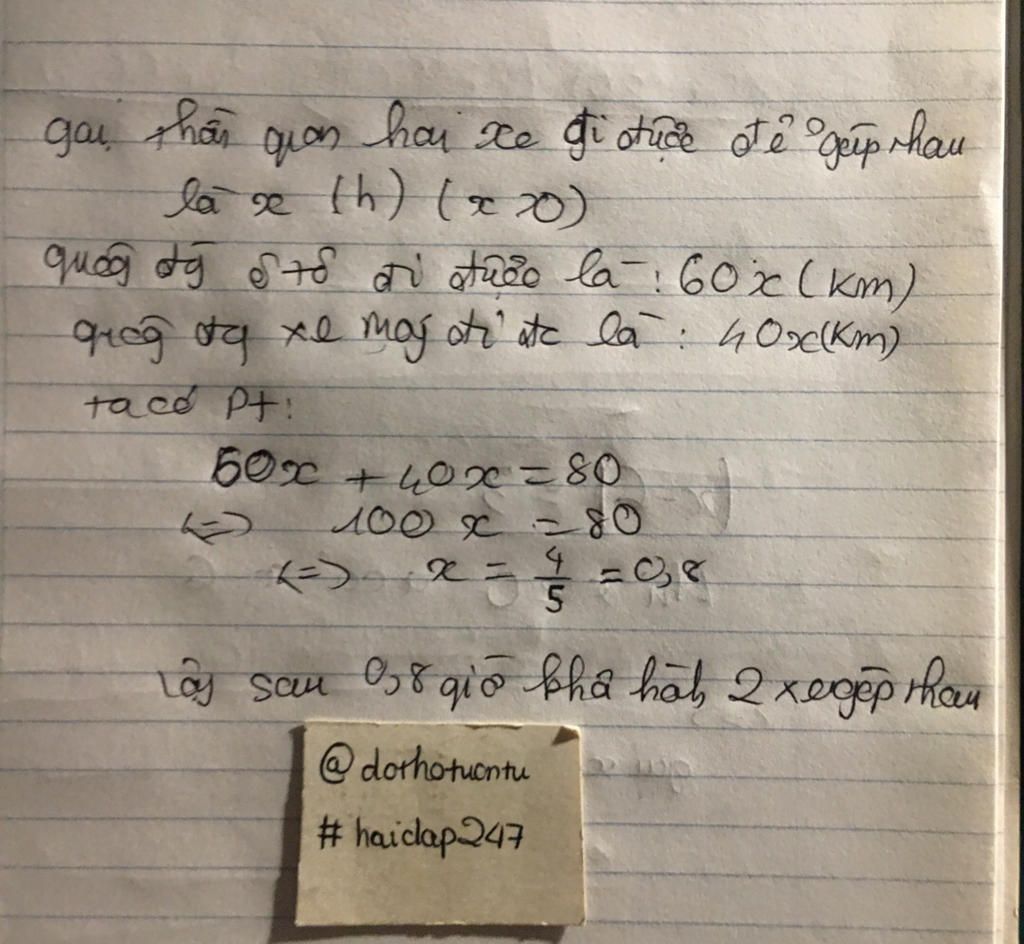 gọi thời gian hai xe đi được để gặp nhau
là x (h) (x>0)
quãng đg ô tô đi được là : 60x (km)
quãng đg xe máy đi đc là : 40x (km)
ta có pt :
60x + 40x = 80
<=> 100x = 80
<=> x = 4/5 = 0,8
Vậy sau 0,8 giờ khởi hành 2 xe gặp nhau
@dothotuontu
#haidap247